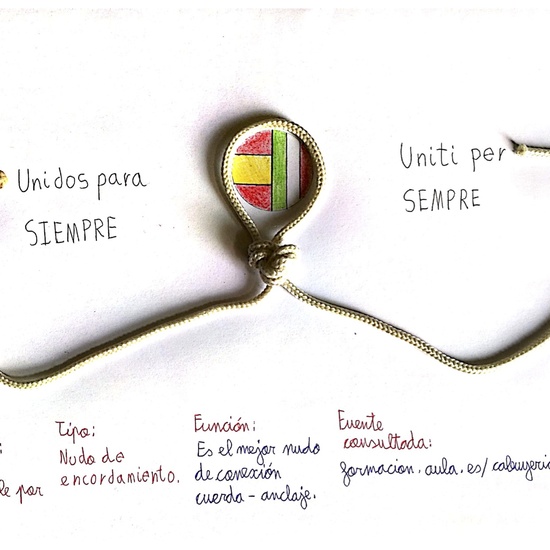 Unidos para
SIEMPRE
Uniti per
SEMPRE
Tipo:
Nudo de
encordamiento.
Función:
Es el mejor nudo
de conexión
cuerda-anclaje.
Fuente
consultada:
formacion.aula.es/cabuyeria
por